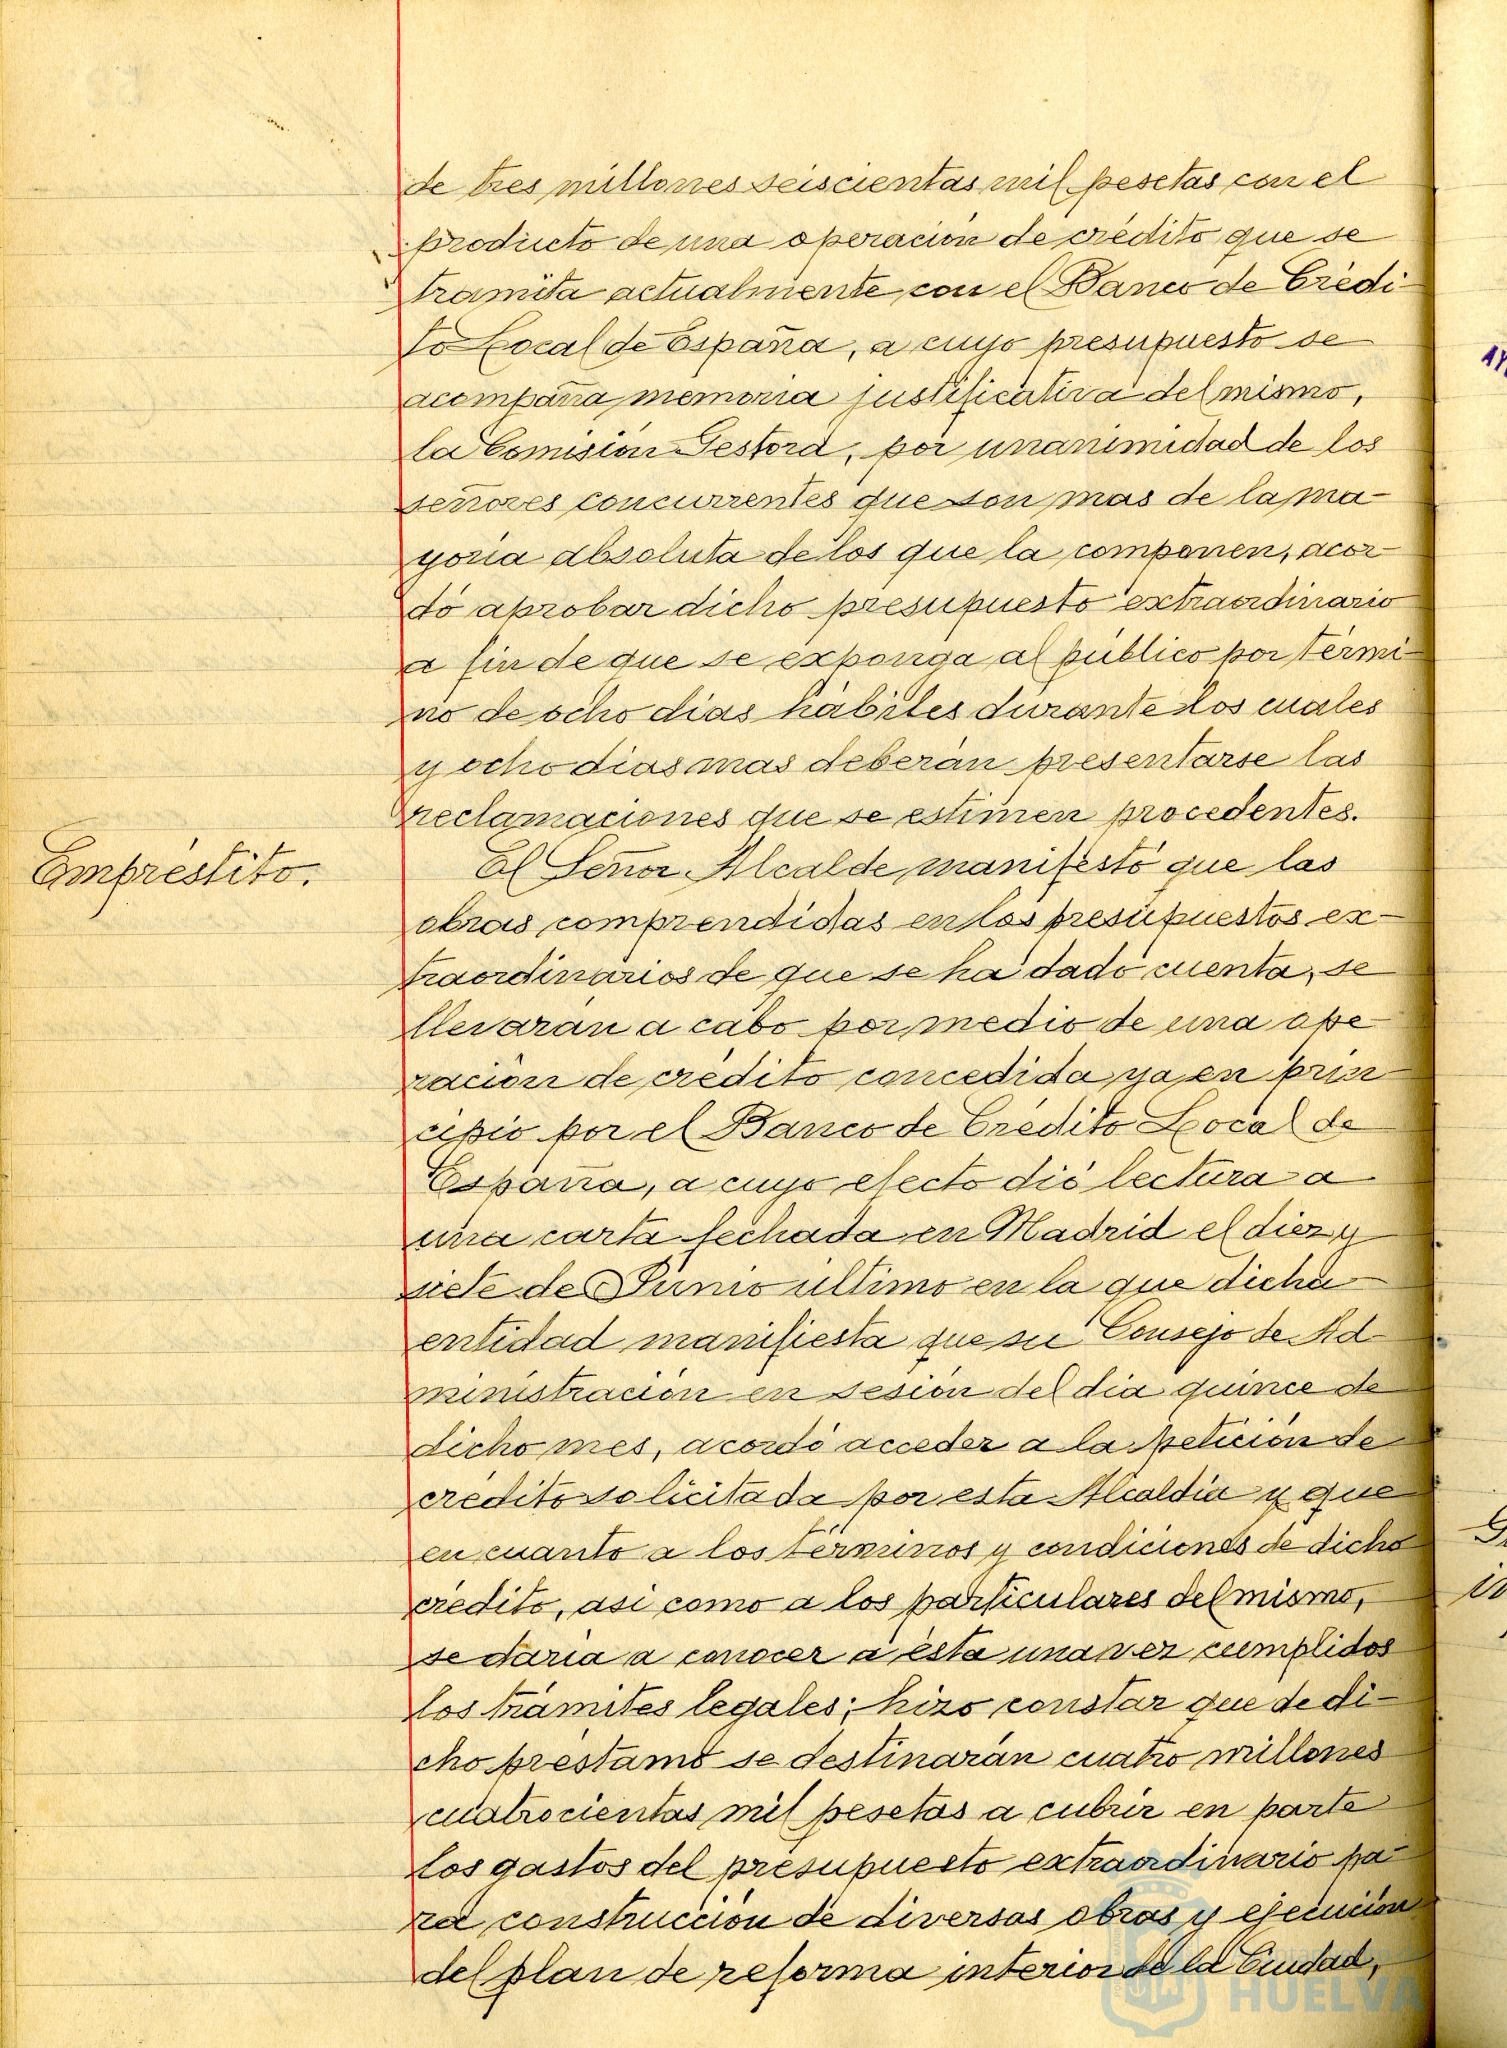 de tres millones seiscientas mil pesetas con el
producto de una operación de crédito que se
tramita actualmente con el Banco de Crédi-
to Local de España, a cuyo presupuesto se
acompaña memoria justificativa del mismo,
la Comisión Gestora, por unanimidad de los
señores concurrentes que son mas de la ma-
yoria absoluta de los que la componen, acor-
dó aprobar dicho presupuesto extraordinario
a fin de que se exponga al público por térmi-
no de ocho dias hábiles durante los cuales
y ocho dias mas deberán presentarse las
reclamaciones que se estimen procedentes.
Empréstito.
El Señor Alcalde manifestó que las
obras comprendidas en los presupuestos ex-
traordinarios de que se ha dado cuenta, se
llevarán a cabo por medio de una ope-
ración de crédito concedida ya en prin-
cipio por el Banco de Crédito Local de
España, a cuyo efecto dió lectura a
una carta fechada en Madrid el diez y
siete de Junio último en la que dicha
entidad manifiesta que su Consejo de Ad-
ministración en sesión del dia quince de
dicho mes, acordó acceder a la petición de
crédito solicitada por esta Alcaldía y que
en cuanto a los términos y condiciones de dicho
crédito, asi como a los particulares del mismo,
se daria a conocer a ésta una vez cumplidos
los trámites legales; hizo constar que de di-
cho préstamo se destinarán cuatro millones
cuatrocientas mil pesetas a cubrir en parte
los gastos del presupuesto extraordinario pa-
ra construcción de diversas obras y ejecución
del plan de reforma interior de la Ciudad,
HUELVA